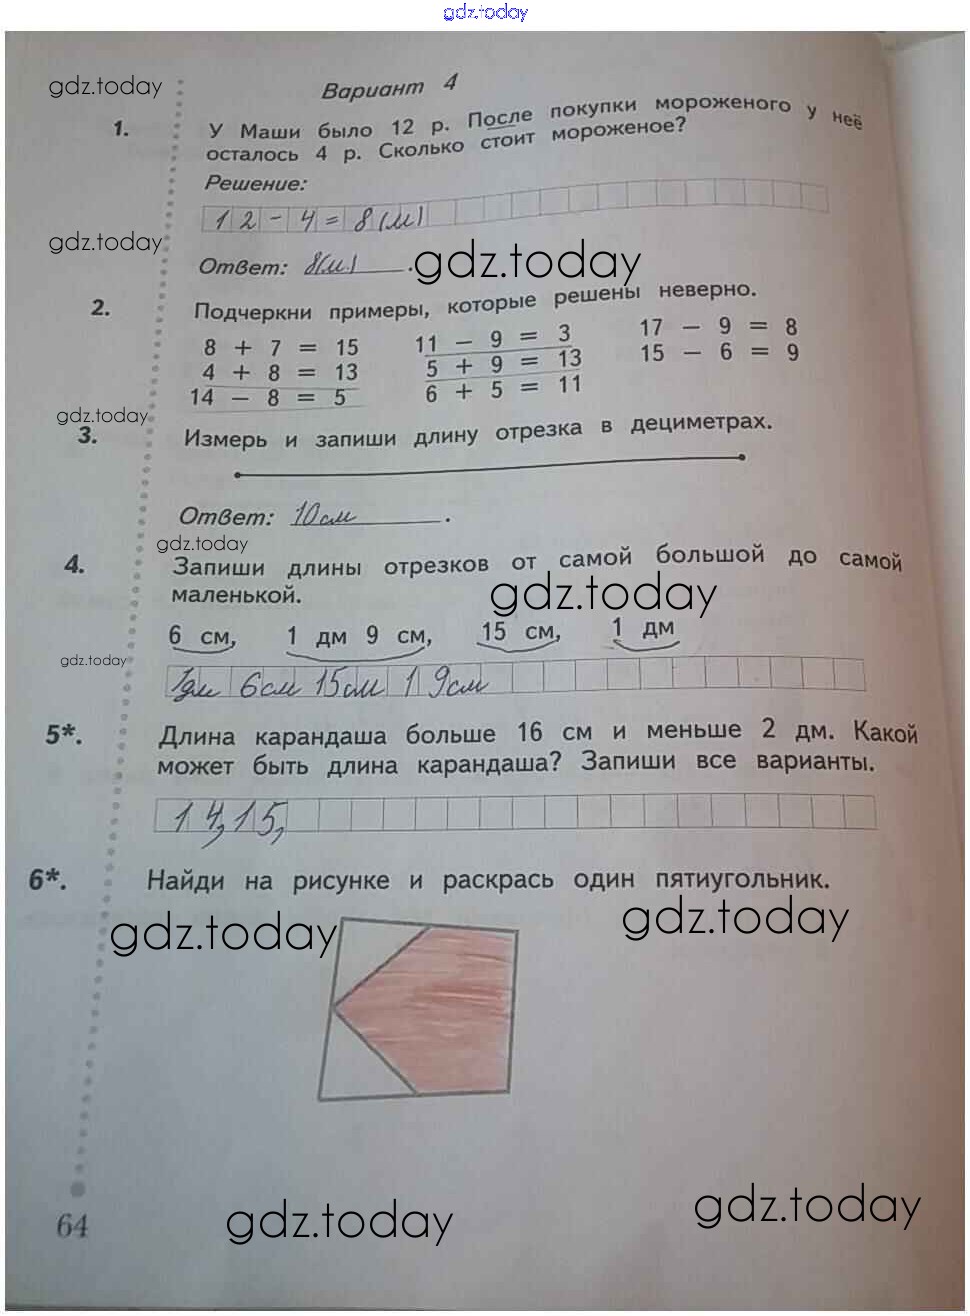 gdz.today
gdz.today
Вариант 4
1. У Маши было 12 р. После покупки мороженого у неё
осталось 4 р. Сколько стоит мороженое?
Решение:
12-4=8(м)
gdz.today
Ответ: 8(м).
gdz.today
2. Подчеркни примеры, которые решены неверно.
8 + 7 = 15 11 - 9 = 3 17 - 9 = 8
4 + 8 = 13 5 + 9 = 13 15 - 6 = 9
14 - 8 = 5 6 + 5 = 11
gdz.today
3. Измерь и запиши длину отрезка в дециметрах.
Ответ: 10см.
gdz.today
4. Запиши длины отрезков от самой большой до самой
маленькой.
gdz.today
6 см, 1 дм 9 см, 15 см, 1 дм
gdz.today
1дм 6см 15см 1 9см
5*. Длина карандаша больше 16 см и меньше 2 дм. Какой
может быть длина карандаша? Запиши все варианты.
14,15,
6*. Найди на рисунке и раскрась один пятиугольник.
gdz.today
gdz.today
64
gdz.today
gdz.today